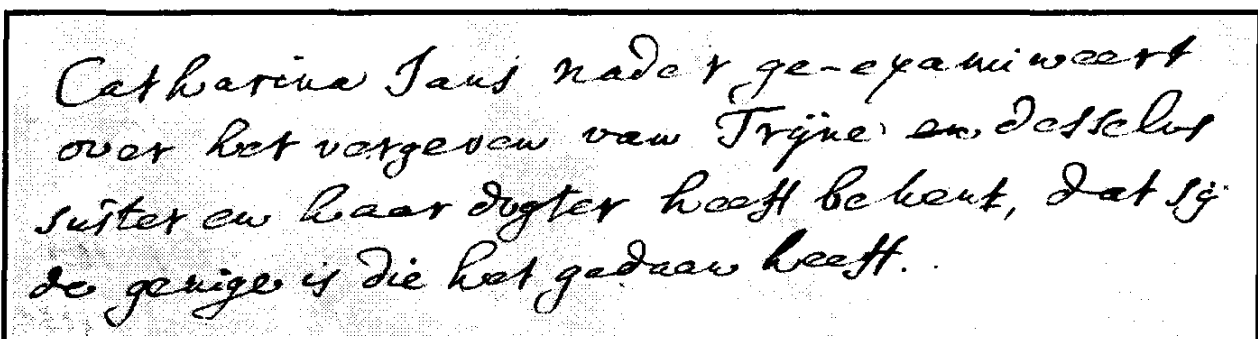 Catharina Jans nader ge-examineert
over het vergeven van Trijne en desselvs
suster en haar dogter heeft bekent, dat sij
de genige is die het gedaen heeft.